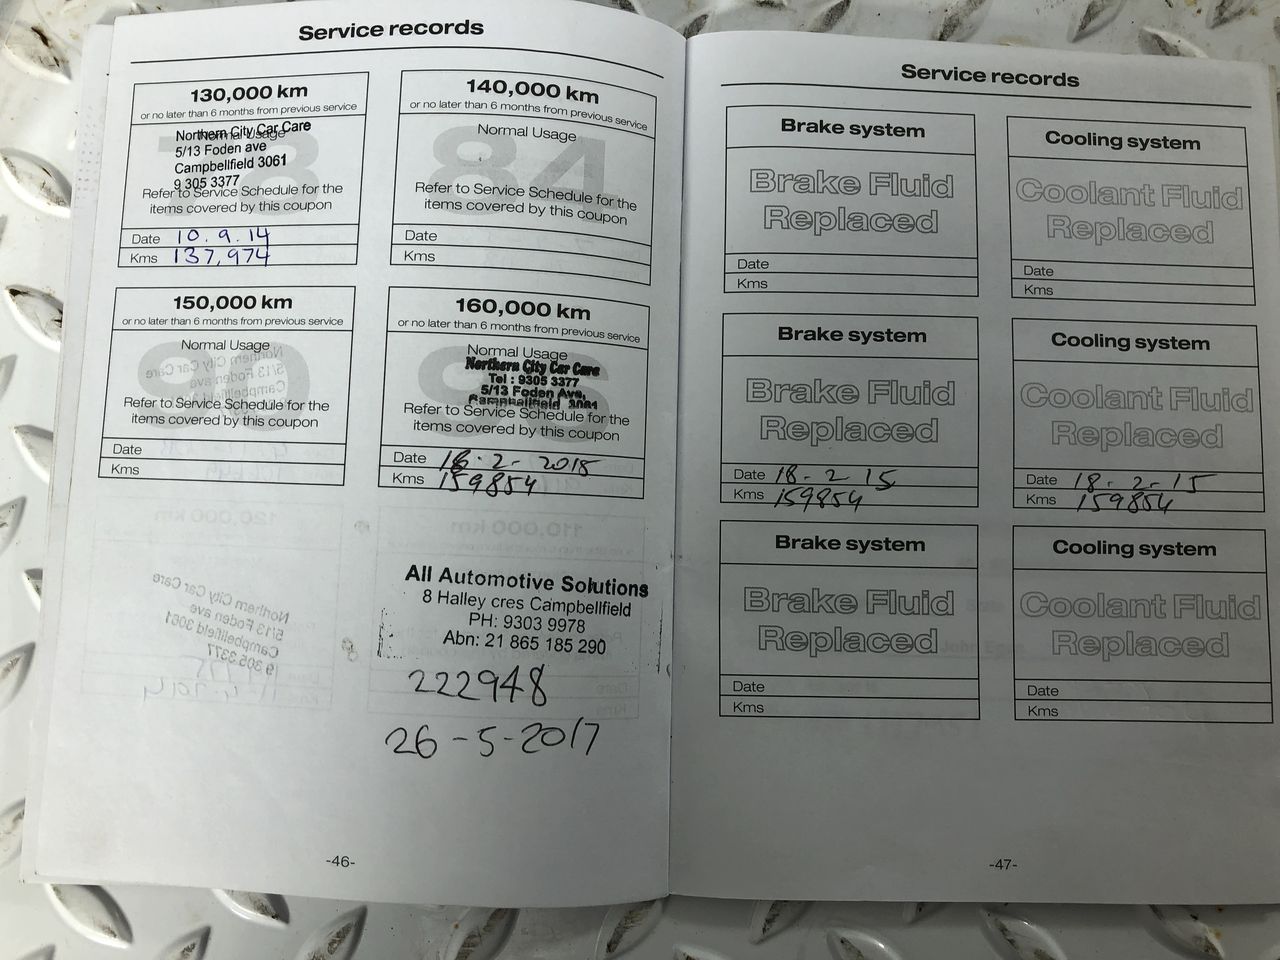 Service records
130,000 km
or no later than 6 months from previous service
Normal Usage
Northern City Car Care
5/13 Foden ave
Campbellfield 3061
9 305 3377
Refer to Service Schedule for the
items covered by this coupon
Date 10.9.14
Kms 137,974
140,000 km
or no later than 6 months from previous service
84
Normal Usage
Refer to Service Schedule for the
items covered by this coupon
Date
Kms
150,000 km
or no later than 6 months from previous service
90
Normal Usage
Refer to Service Schedule for the
items covered by this coupon
Date
Kms
160,000 km
or no later than 6 months from previous service
96
Normal Usage
Northern City Car Care
Tel : 9305 3377
5/13 Foden Ave,
Campbellfield 3061
Refer to Service Schedule for the
items covered by this coupon
Date 18.2-2015
Kms 159854
All Automotive Solutions
8 Halley cres Campbellfield
PH: 9303 9978
Abn: 21 865 185 290
222948
26-5-2017
-46-
Service records
Brake system
Brake Fluid
Replaced
Date
Kms
Cooling system
Coolant Fluid
Replaced
Date
Kms
Brake system
Brake Fluid
Replaced
Date 18-2 15
Kms 159854
Cooling system
Coolant Fluid
Replaced
Date 18-2-15
Kms 159854
Brake system
Brake Fluid
Replaced
Date
Kms
Cooling system
Coolant Fluid
Replaced
Date
Kms
-47-